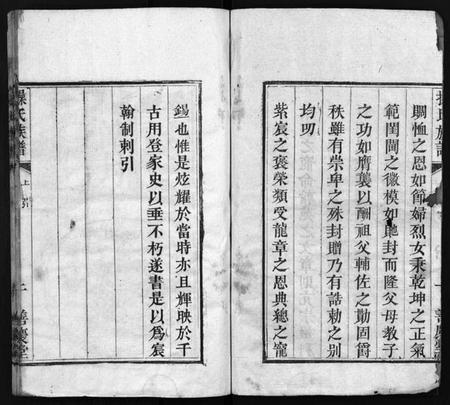 賙恤之恩如節婦烈女秉乾坤之正氣
範閨閫之徽模如貤封而隆父母教子
之功如廕襲以酬祖父輔佐之勛固爵
秩雖有崇卑之殊封贈乃有誥勅之別
均叨
紫宸之褒榮類受龍章之恩典總之寵
錫也惟是炫耀於當時亦且輝映於千
古用登家史以垂不朽遂書是以為宸
翰制剌引
操氏族譜
上
善慶堂